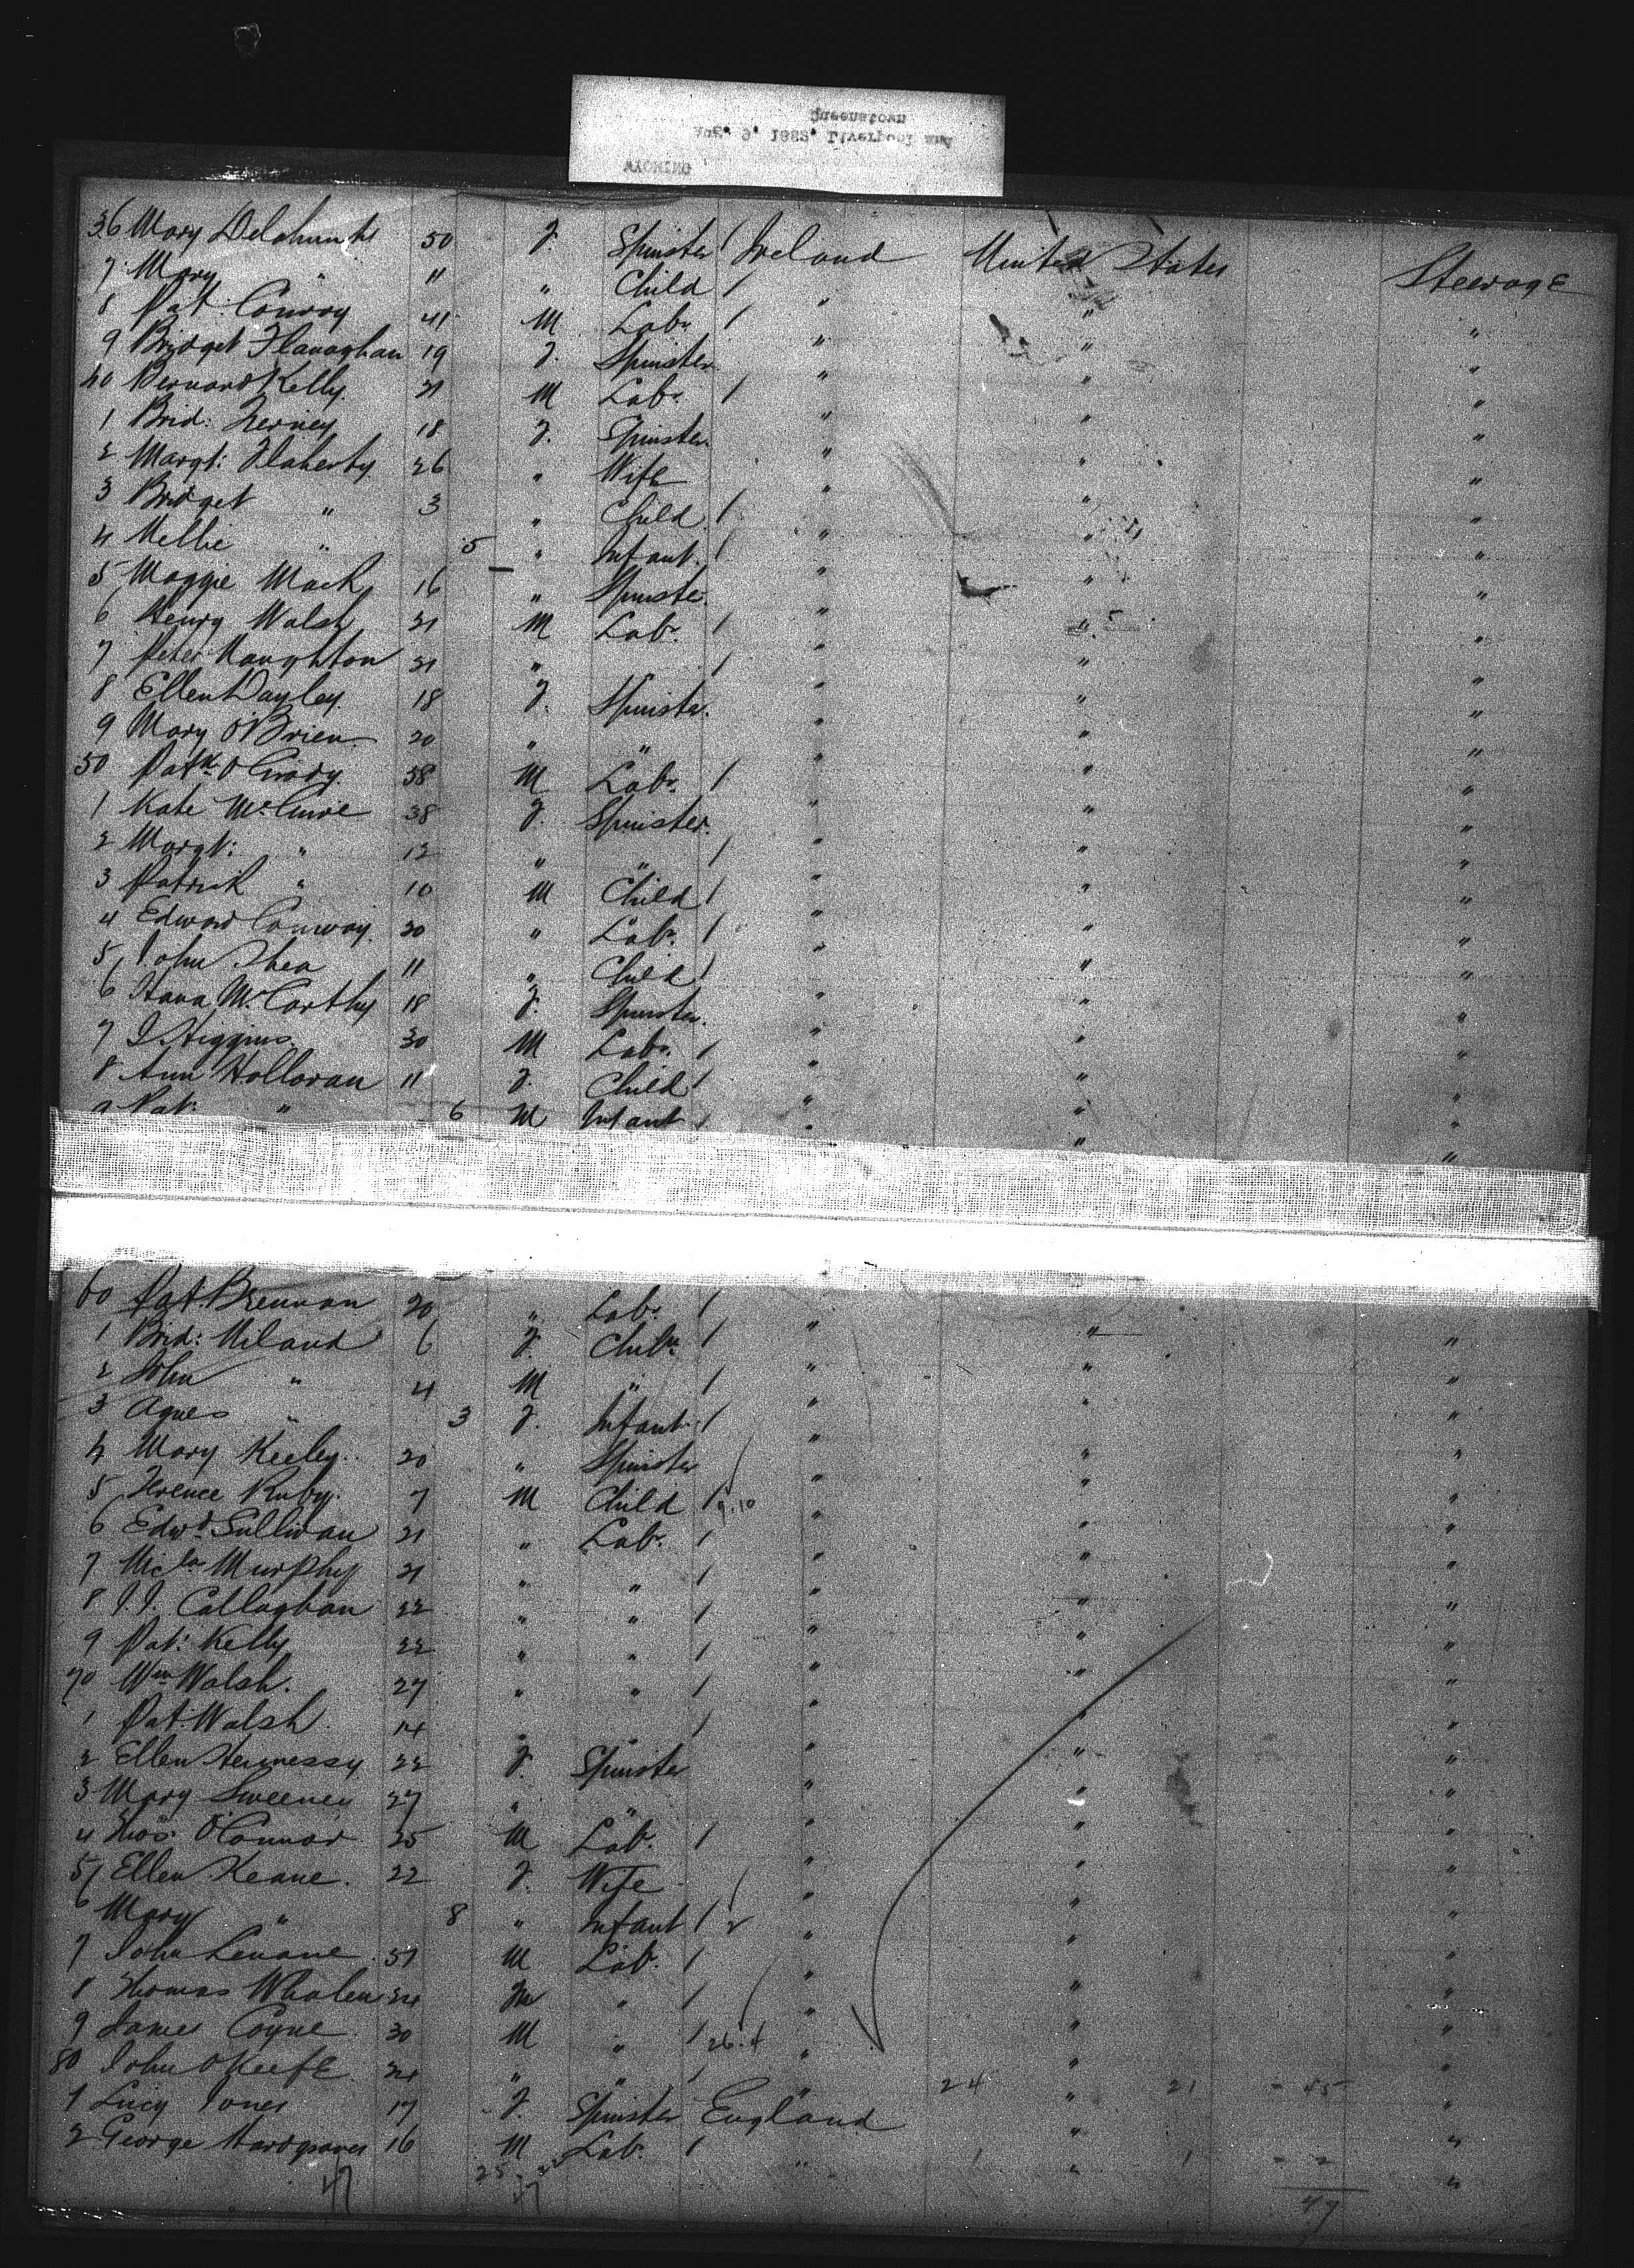 WYOMING
Aug. 9, 1882, Liverpool and
Queenstown
36 Mary Delahunty 50 F. Spinster / Ireland United States Steerage
7 Mary " 11 " Child / " " "
8 Pat. Conroy 41 M Labr. / " " "
9 Bridget Flanaghan 19 F. Spinster " " "
40 Bernard Kelly 21 M Labr. / " " "
1 Brid: 18 F. Spinster " " "
2 Margt: Flaherty 26 " Wife " " "
3 Bridget " 3 " Child / " " "
4 Nellie " 5 " Infant / " " "
5 Maggie Mack 16 " Spinster " " "
6 Henry Walsh 21 M Labr. / " " "
7 Peter Naughton 21 " / " " "
8 Ellen Dayley 18 F. Spinster " " "
9 Mary O'Brien 20 " " " " "
50 Patk. O'Grady 38 M Labr. / " " "
1 Kate 38 F. Spinster " " "
2 Margt: " 12 " " / " " "
3 Patrick " 10 M Child / " " "
4 Edward Conway 20 " Labr. / " " "
5 John Shea 11 " Child / " " "
6 Hana McCarthy 18 F. Spinster " " "
7 J Higgins 30 M Labr. / " " "
8 Ann Holloran 11 F. Child / " " "
9 Pat. " 6 M Infant / " " "
60 Pat. Brennan 20 " Labr. / " " "
1 Brid: Niland 6 F. Child / " " "
2 John " 4 M " / " " "
3 Agnes " 3 F. Infant / " " "
4 Mary Keeley 20 " Spinster " " "
5 Terence Ruby 7 M Child / 9.10 " " "
6 Edwd Sullivan 21 " Labr. / " " "
7 Murphy 21 " " / " " "
8 J.J. Callaghan 22 " " / " " "
9 Pat. Kelly 22 " " / " " "
70 Wm Walsh 27 " " / " " "
1 Pat. Walsh 14 " " / " " "
2 Ellen Hennessy 22 F. Spinster " " "
3 Mary Sweeney 27 " " " " "
4 Thos. O'Connor 25 M Labr. / " " "
5 Ellen Keane 22 F. Wife " " "
6 Mary " 8 " Infant / " " "
7 John Lenane 51 M Labr. / " " "
8 Thomas Whalen 24 M " / " " "
9 James Coyne 30 M " / 26.4 " " "
80 John O'Keefe 24 " " / " " "
24 21 - 45
1 Lucy Jones 17 F. Spinster England " "
2 George Hardgraves 16 M Labr. / " " "
1 1 - 2
47 25
47